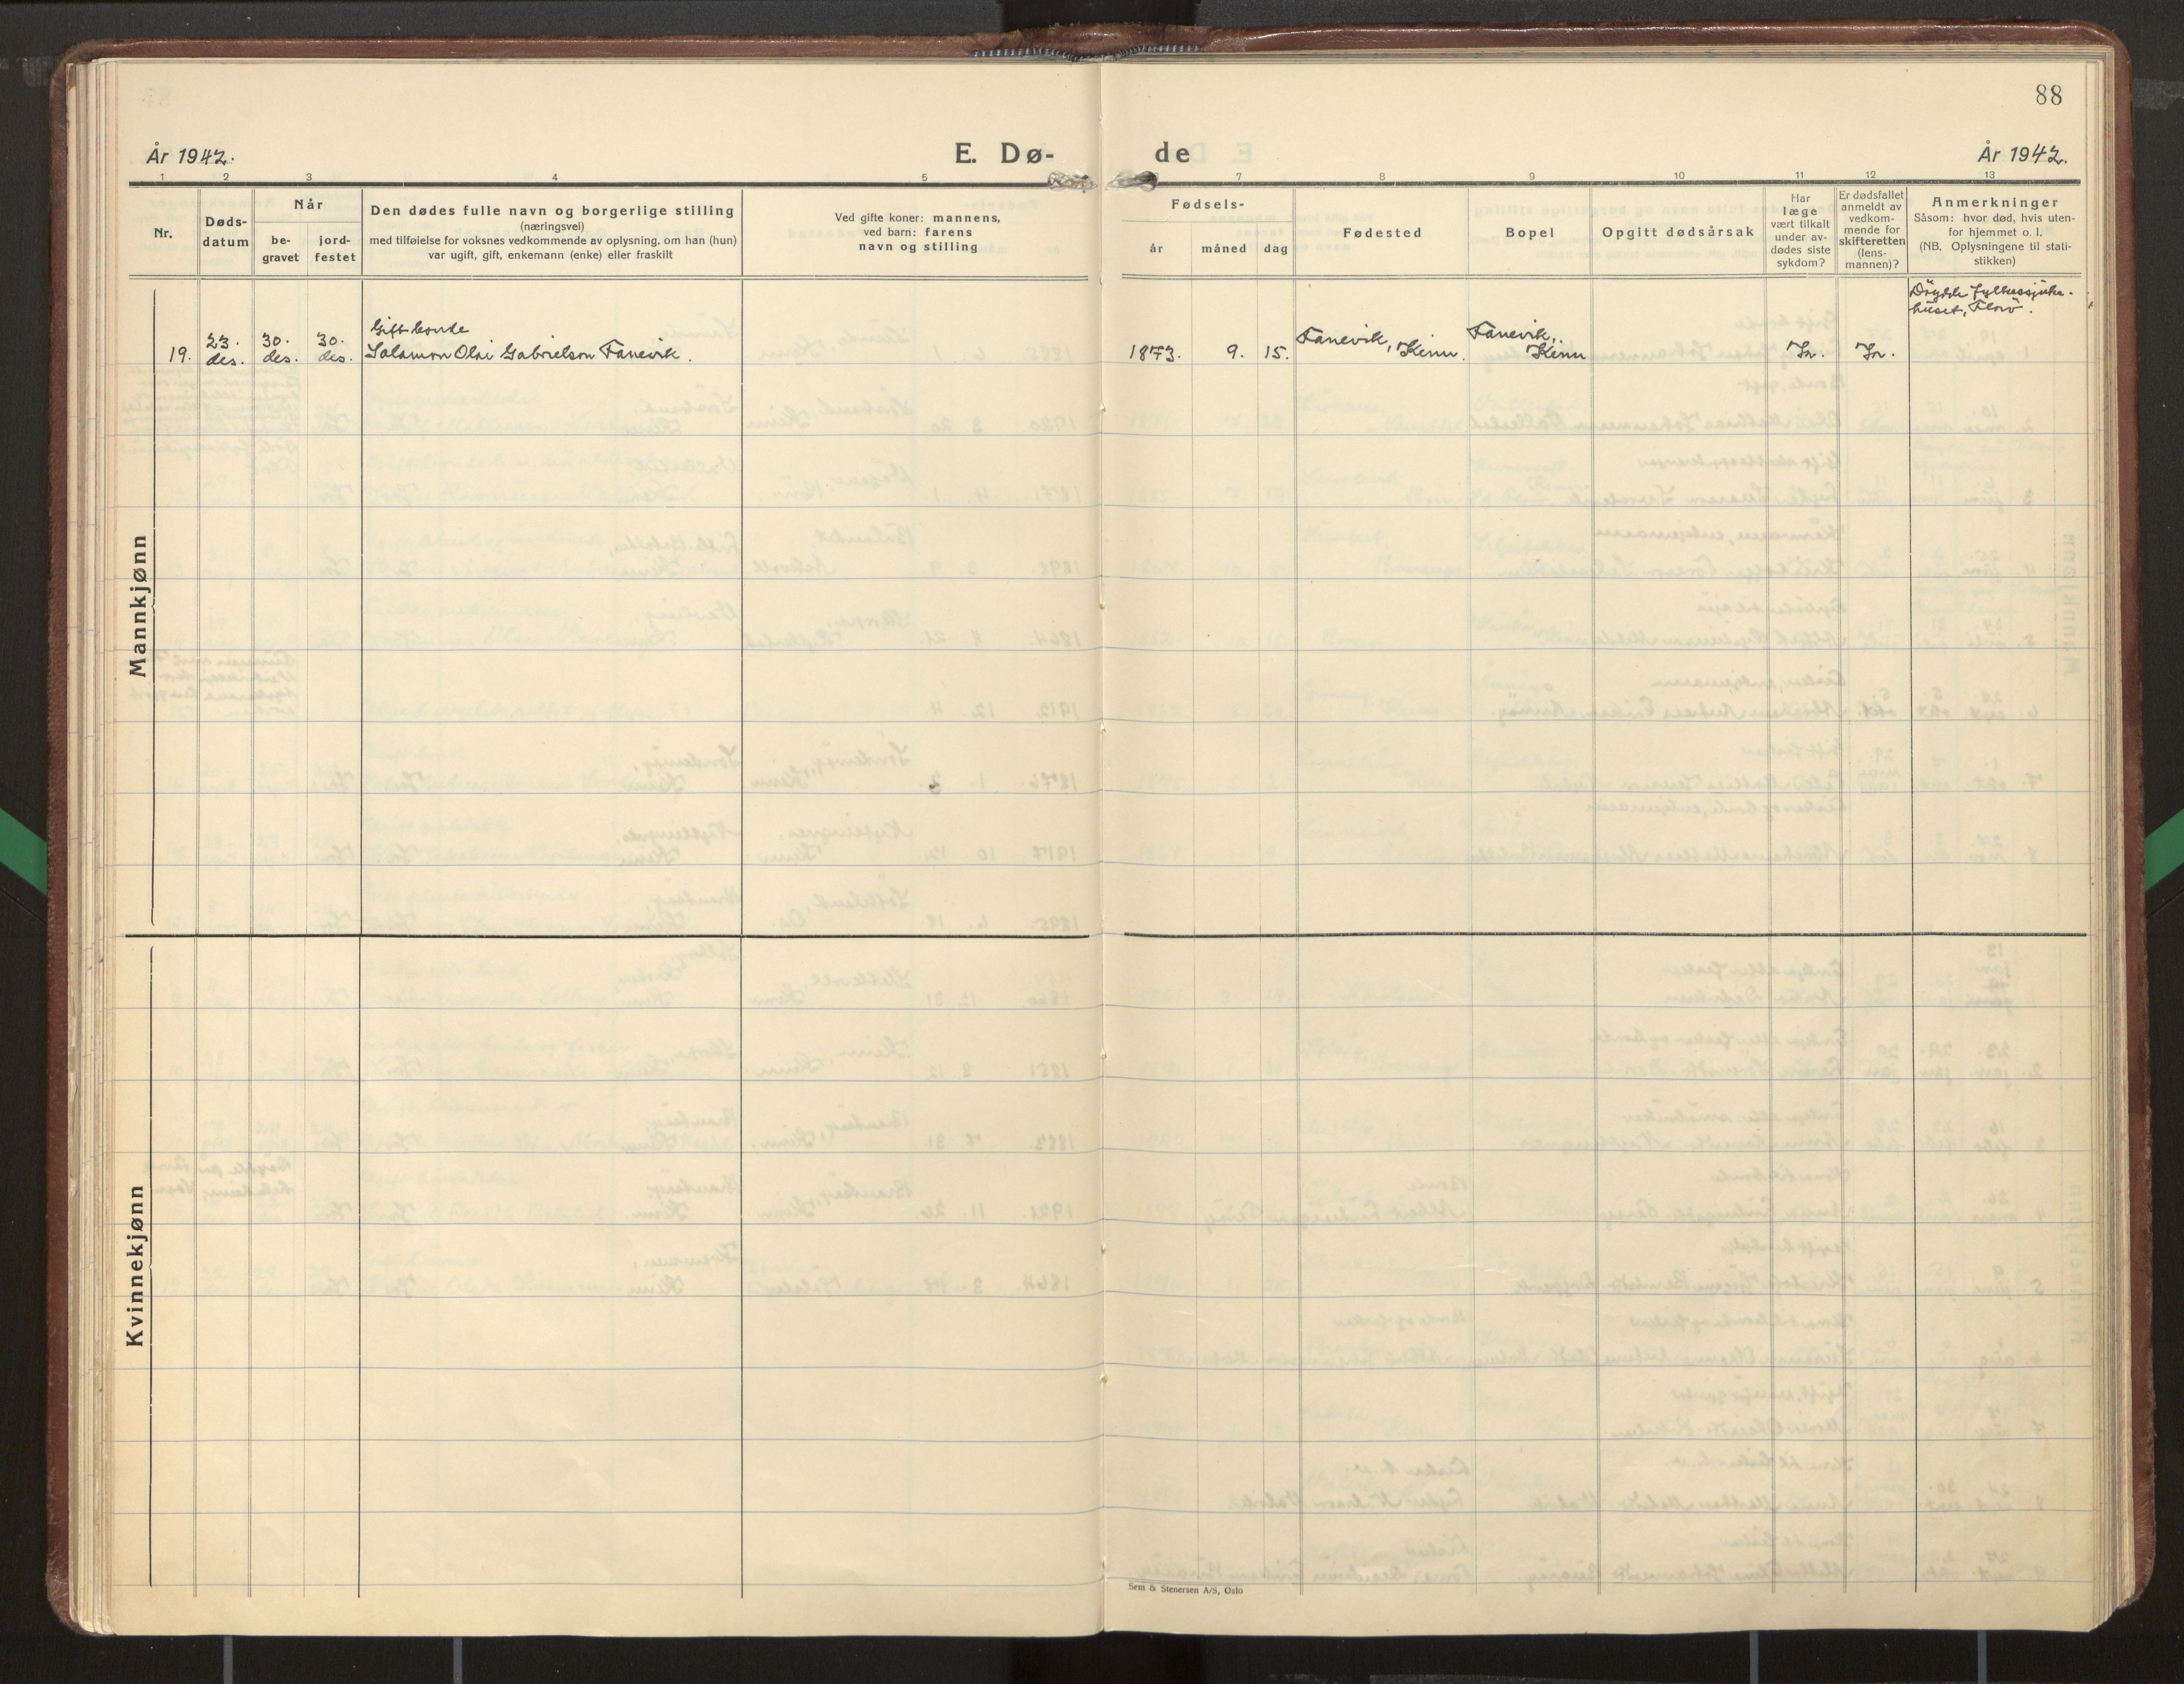 88
År 1942.
E. Dø-
de
År 1942.
1 2 3 4 5 7 8 9 10 11 12 13
Nr.
Døds-
datum
Når
be-
gravet
jord-
festet
Den dødes fulle navn og borgerlige stilling
(næringsvei)
med tilføielse for voksnes vedkommende av oplysning, om han (hun)
var ugift, gift, enkemann (enke) eller fraskilt
Ved gifte koner: mannens,
ved barn: farens
navn og stilling
Fødsels-
år måned dag
Fødested
Bopel
Opgitt dødsårsak
Har
læge
vært tilkalt
under av-
dødes siste
sykdom?
Er dødsfallet
anmeldt av
vedkom-
mende for
skifteretten
(lens-
mannen)?
Anmerkninger
Såsom: hvor død, hvis uten-
for hjemmet o. l.
(NB. Oplysningene til stati-
stikken)
Mannkjønn
19.
23.
des.
30.
des.
30.
des.
Gift bonde
Salamon Olai Gabrielson Fanevik.
1873. 9. 15.
Fanevik,
Kinn.
Fanevik,
Kinn
Ja.
Ja.
Døydde fylkessjuke-
huset, Florø.
Kvinnekjønn
Sem & Stenersen A/S, Oslo